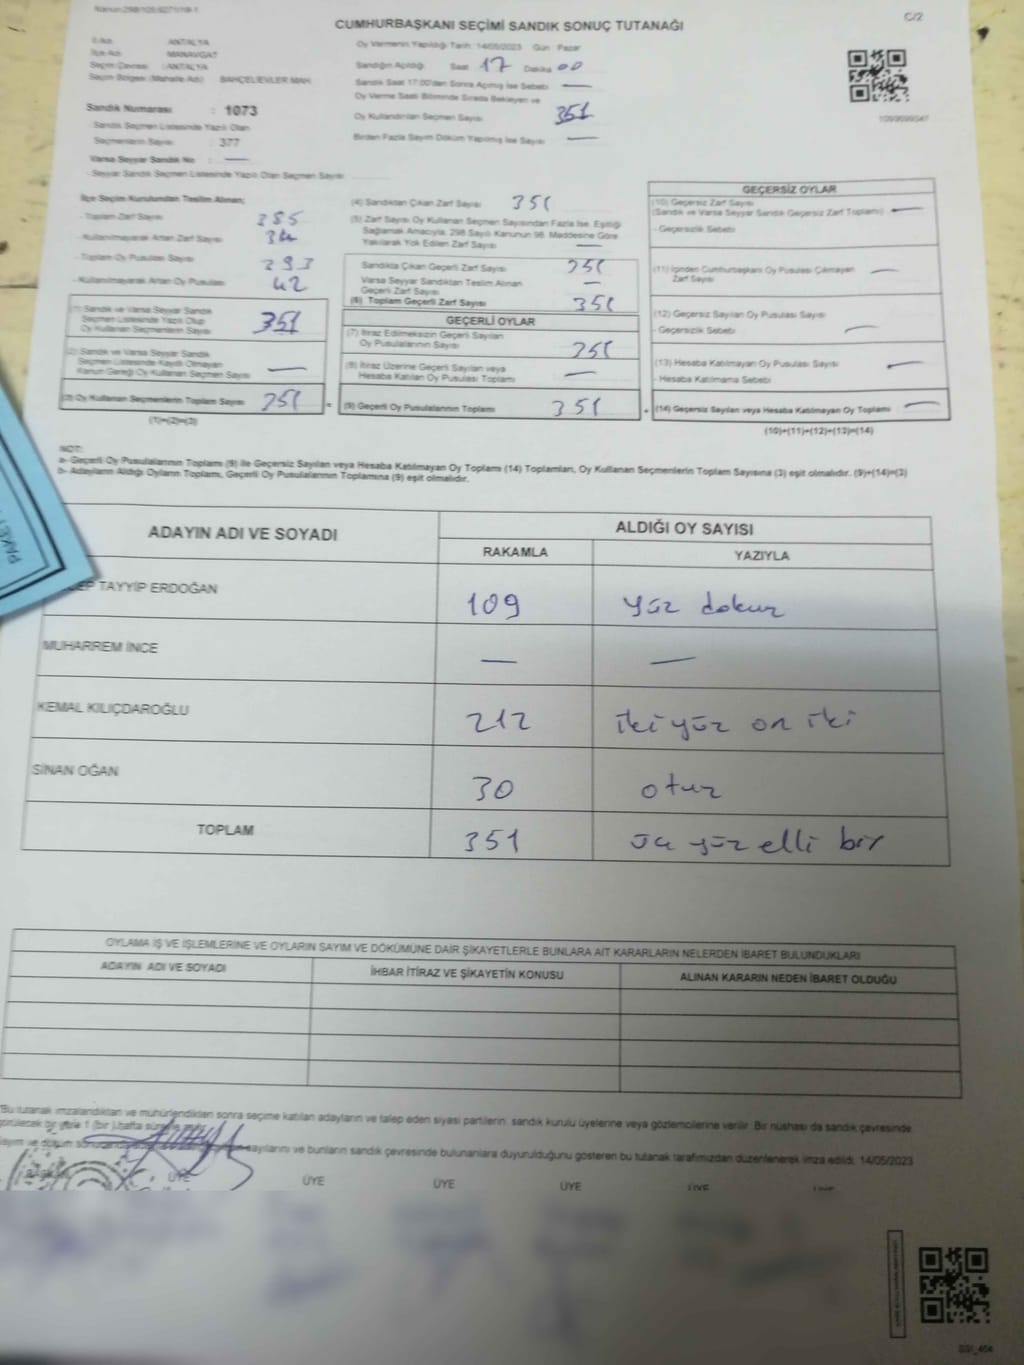 CUMHURBAŞKANI SEÇİMİ SANDIK SONUÇ TUTANAĞI
C/2
İl Adı : ANTALYA
İlçe Adı : MANAVGAT
Seçim Çevresi : ANTALYA
Seçim Bölgesi (Mahalle Adı) : BAHÇELİEVLER MAH.
Sandık Numarası : 1073
Sandık Seçmen Listesinde Yazılı Olan
Seçmenlerin Sayısı : 377
Varsa Seyyar Sandık No : —
Seyyar Sandık Seçmen Listesinde Yazılı Olan Seçmen Sayısı
Oy Vermenin Yapıldığı Tarih: 14/05/2023 Gün: Pazar
Sandığın Açıldığı Saat 17 Dakika 00
Sandık Saat 17:00'den Sonra Açılmış İse Sebebi —
Oy Verme Saati Bitiminde Sırada Bekleyen ve
Oy Kullandırılan Seçmen Sayısı 351
Birden Fazla Sayım Döküm Yapılmış İse Sayısı —
İlçe Seçim Kurulundan Teslim Alınan;
- Toplam Zarf Sayısı 385
- Kullanılmayarak Artan Zarf Sayısı 34
- Toplam Oy Pusulası Sayısı 393
- Kullanılmayarak Artan Oy Pusulası 42
(1) Sandık ve Varsa Seyyar Sandık
Seçmen Listesinde Yazılı Olup
Oy Kullanan Seçmenlerin Sayısı 351
(2) Sandık ve Varsa Seyyar Sandık
Seçmen Listesinde Kayıtlı Olmayan
Kanun Gereği Oy Kullanan Seçmen Sayısı —
(3) Oy Kullanan Seçmenlerin Toplam Sayısı 351 =
(1)+(2)=(3)
(4) Sandıktan Çıkan Zarf Sayısı 351
(5) Zarf Sayısı Oy Kullanan Seçmen Sayısından Fazla İse, Eşitliği
Sağlamak Amacıyla, 298 Sayılı Kanunun 98. Maddesine Göre
Yakılarak Yok Edilen Zarf Sayısı —
Sandıkta Çıkan Geçerli Zarf Sayısı 351
Varsa Seyyar Sandıktan Teslim Alınan
Geçerli Zarf Sayısı —
(6) Toplam Geçerli Zarf Sayısı 351
GEÇERLİ OYLAR
(7) İtiraz Edilmeksizin Geçerli Sayılan
Oy Pusulalarının Sayısı 351
(8) İtiraz Üzerine Geçerli Sayılan veya
Hesaba Katılan Oy Pusulası Toplamı —
(9) Geçerli Oy Pusulalarının Toplamı 351 +
GEÇERSİZ OYLAR
(10) Geçersiz Zarf Sayısı
(Sandık ve Varsa Seyyar Sandık Geçersiz Zarf Toplamı) —
- Geçersizlik Sebebi
(11) İçinden Cumhurbaşkanı Oy Pusulası Çıkmayan —
Zarf Sayısı
(12) Geçersiz Sayılan Oy Pusulası Sayısı
- Geçersizlik Sebebi —
(13) Hesaba Katılmayan Oy Pusulası Sayısı —
- Hesaba Katılmama Sebebi
(14) Geçersiz Sayılan veya Hesaba Katılmayan Oy Toplamı —
(10)+(11)+(12)+(13)=(14)
NOT:
a- Geçerli Oy Pusulalarının Toplamı (9) ile Geçersiz Sayılan veya Hesaba Katılmayan Oy Toplamı (14) Toplamları, Oy Kullanan Seçmenlerin Toplam Sayısına (3) eşit olmalıdır. (9)+(14)=(3)
b- Adayların Aldığı Oyların Toplamı, Geçerli Oy Pusulalarının Toplamına (9) eşit olmalıdır.
ADAYIN ADI VE SOYADI
ALDIĞI OY SAYISI
RAKAMLA YAZIYLA
TAYYİP ERDOĞAN 109 yüz dokuz
MUHARREM İNCE — —
KEMAL KILIÇDAROĞLU 212 iki yüz on iki
SİNAN OĞAN 30 otuz
TOPLAM 351 üç yüz elli bir
OYLAMA İŞ VE İŞLEMLERİNE VE OYLARIN SAYIM VE DÖKÜMÜNE DAİR ŞİKAYETLERLE BUNLARA AİT KARARLARIN NELERDEN İBARET BULUNDUKLARI
ADAYIN ADI VE SOYADI İHBAR İTİRAZ VE ŞİKAYETİN KONUSU ALINAN KARARIN NEDEN İBARET OLDUĞU
Bu tutanak imzalandıktan ve mühürlendikten sonra seçime katılan adayların ve talep eden siyasi partilerin, sandık kurulu üyelerine veya gözlemcilerine verilir. Bir nüshası da sandık çevresinde
görülecek bir yere 1 (bir) hafta
sayılarını ve bunların sandık çevresinde bulunanlara duyurulduğunu gösteren bu tutanak tarafımızdan düzenlenerek imza edildi. 14/05/2023
ÜYE ÜYE ÜYE ÜYE ÜYE